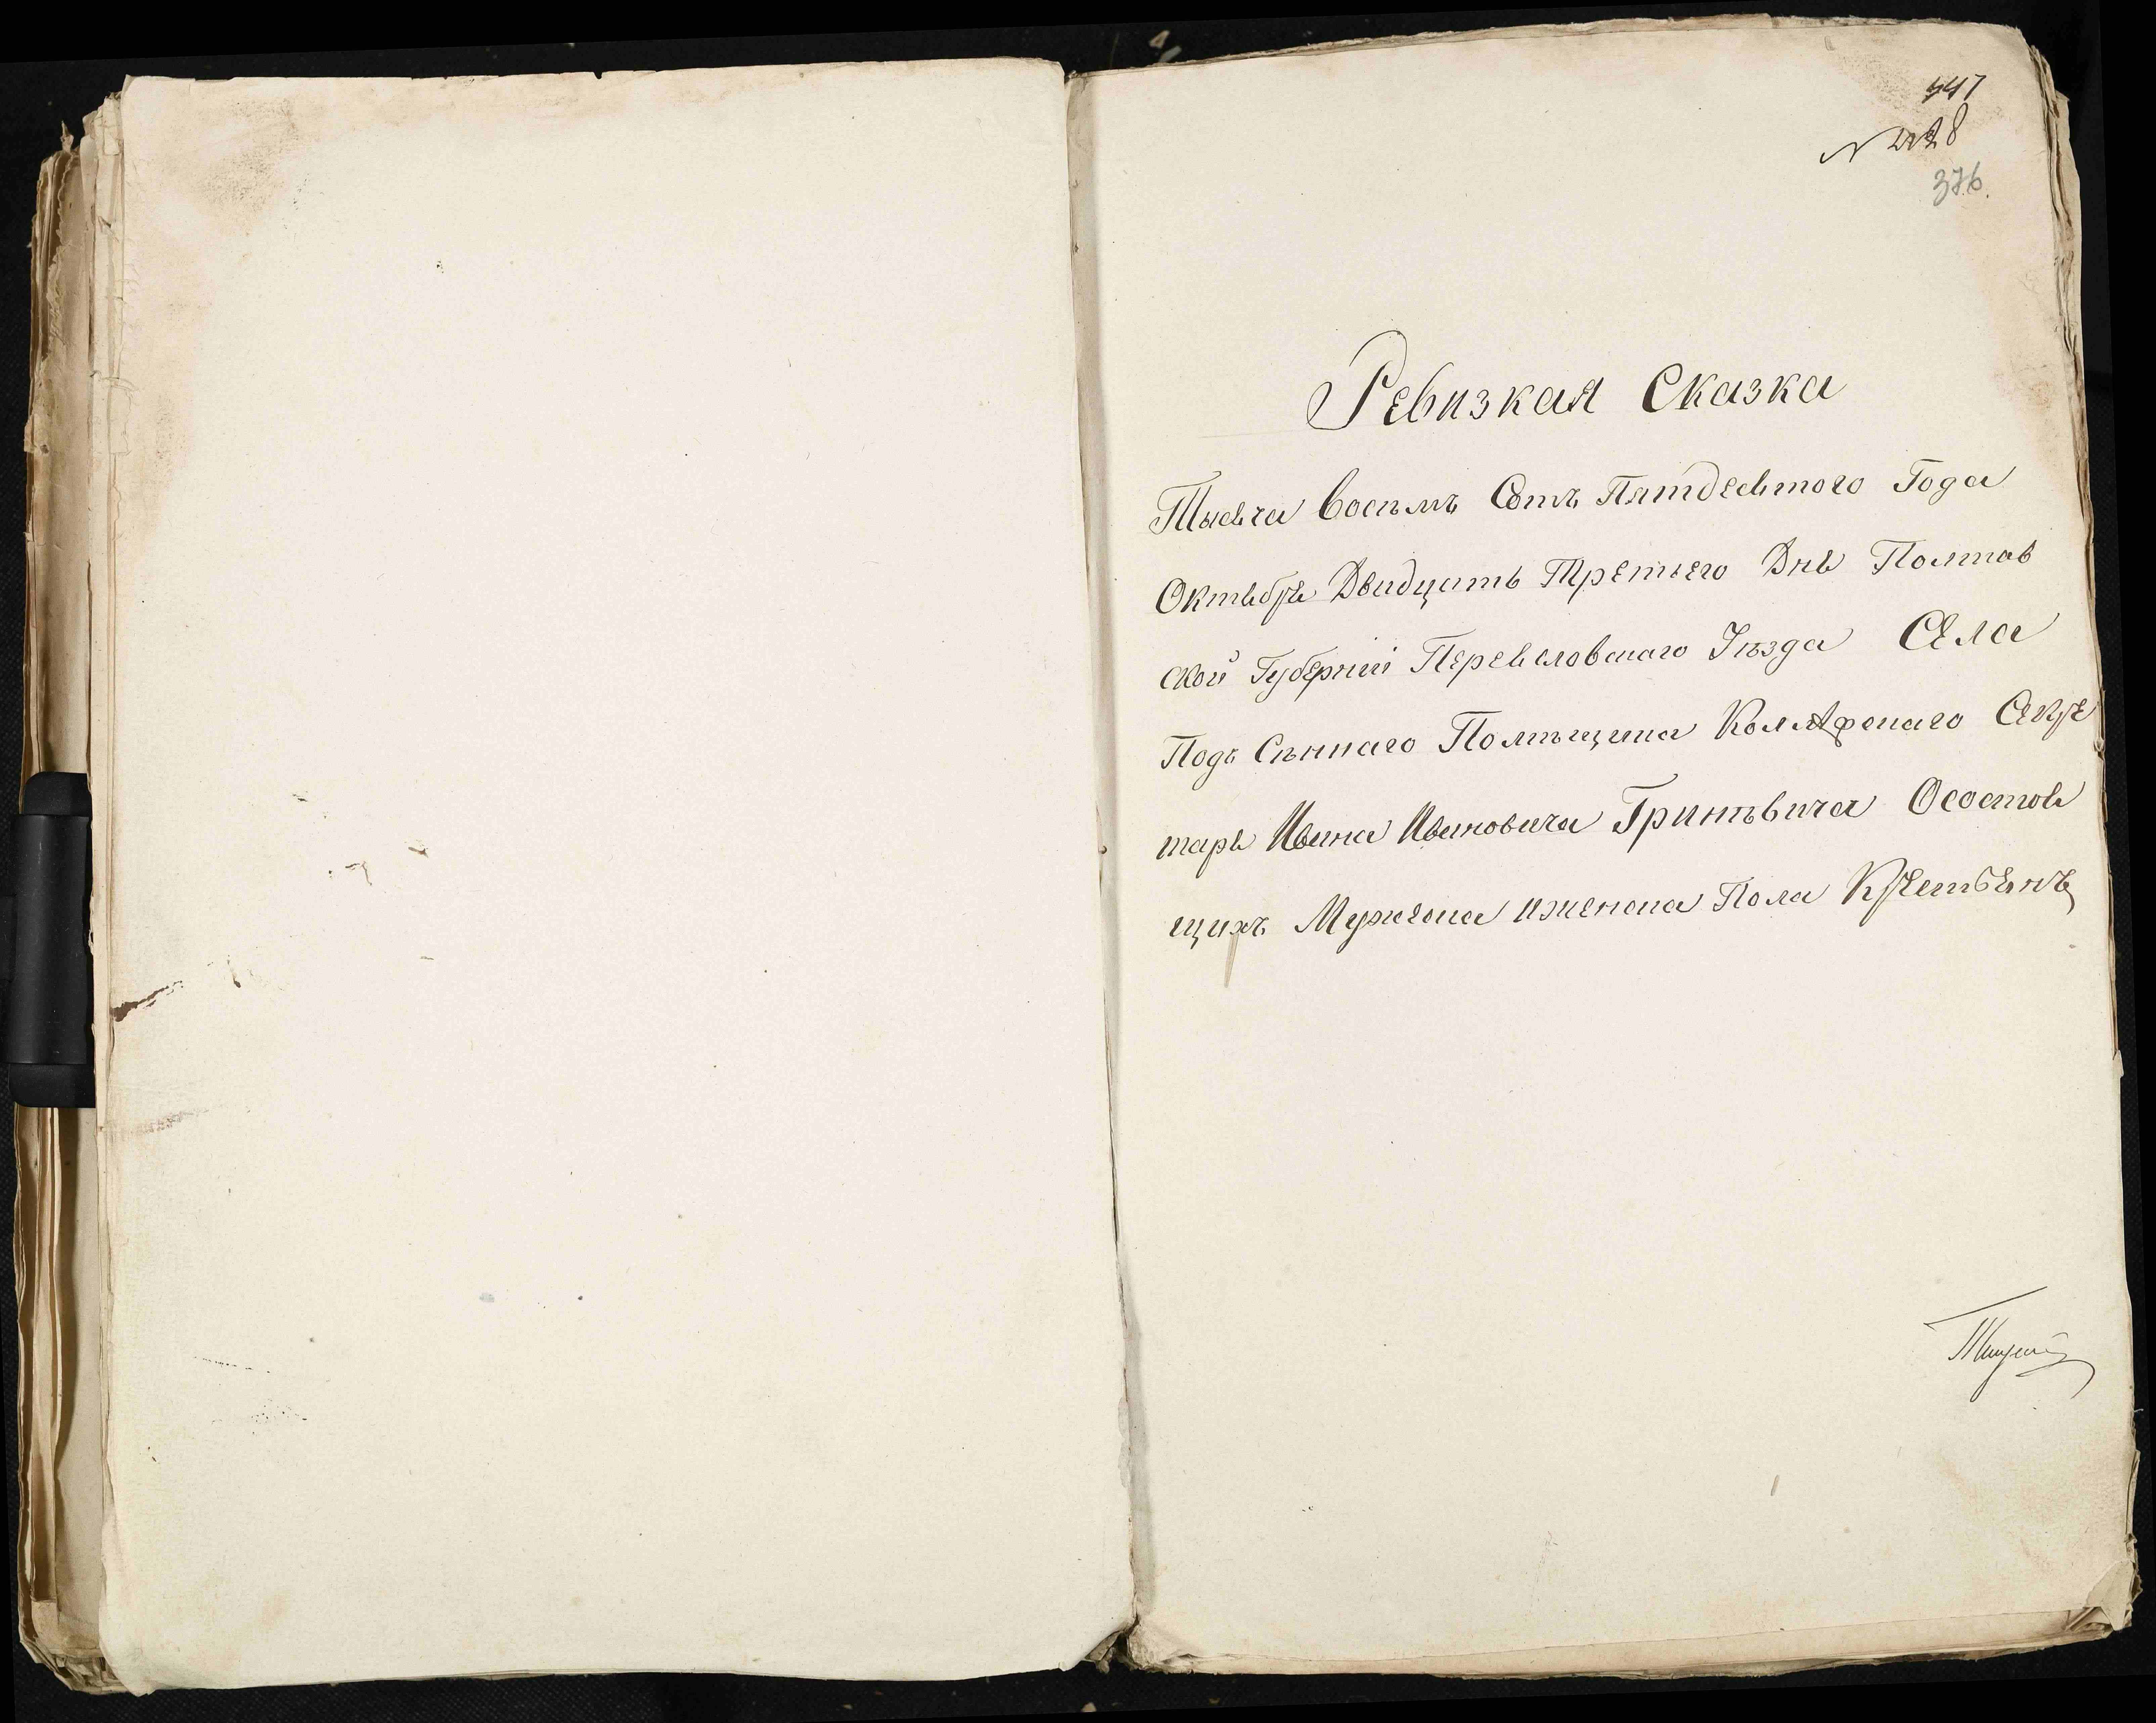 447
N 8
376.
Ревизкая Сказка
Тысяча восѣмъ Сотъ Пятдесятого Года
Октября Двадцать Третьего Дня Полтав
ской Губерніи Переясловскаго Уѣзда Села
Подъ Сѣннаго Помѣщика Колежскаго Секре
таря Ивана Ивановича Гринѣвича Осостоя
щихъ Мужеска иженска Пола Крестьянъ